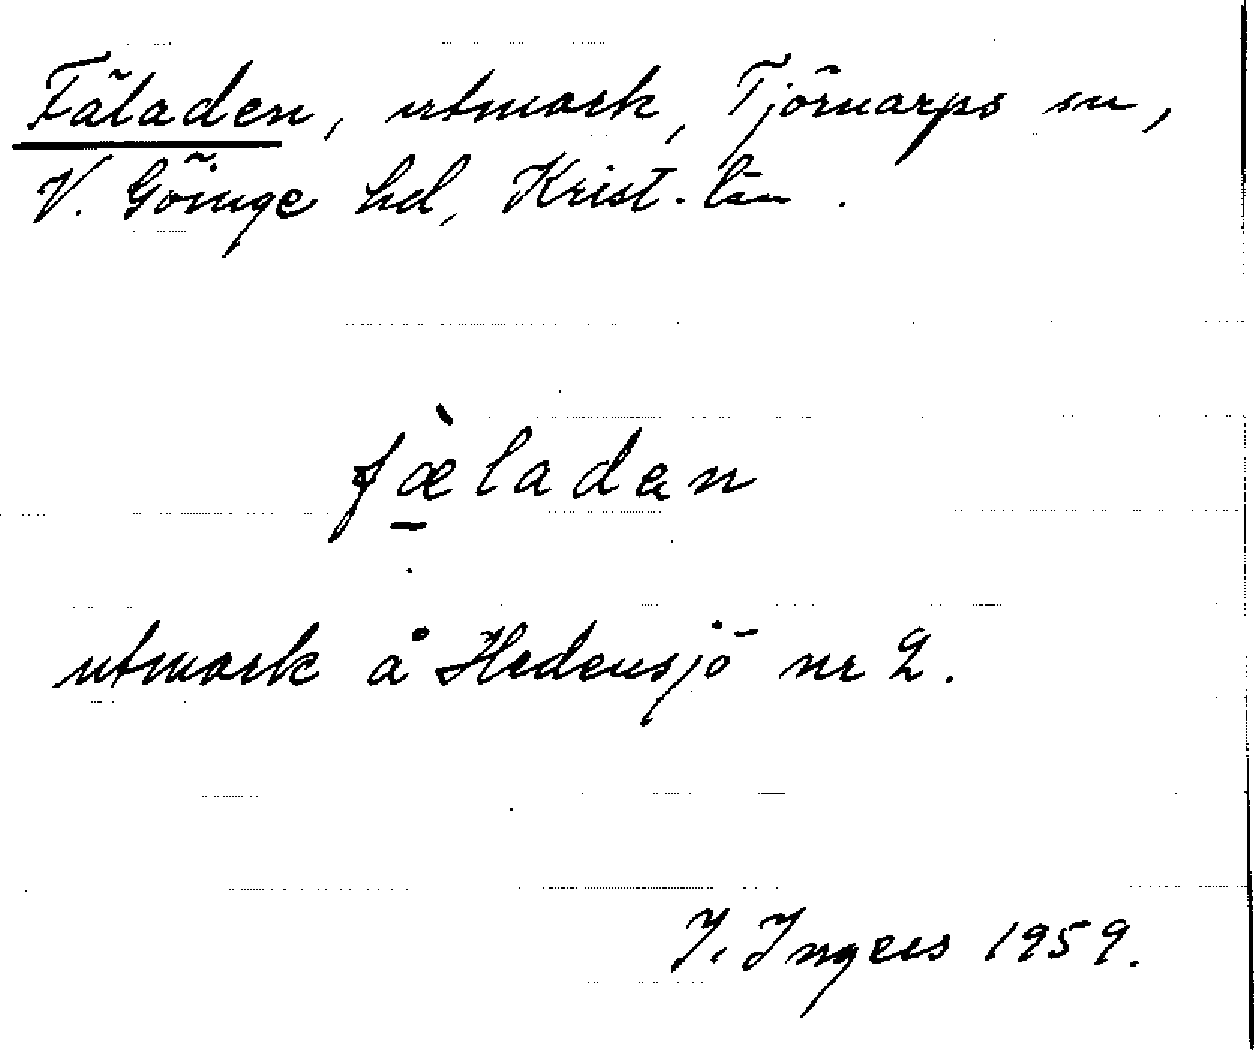 Fäladen, utmark, Tjörnarps sn,
V. Göinge hd, Krist. län.
fæ̀ladan
utmark å Hedensjö nr 2.
I. Ingers 1959.